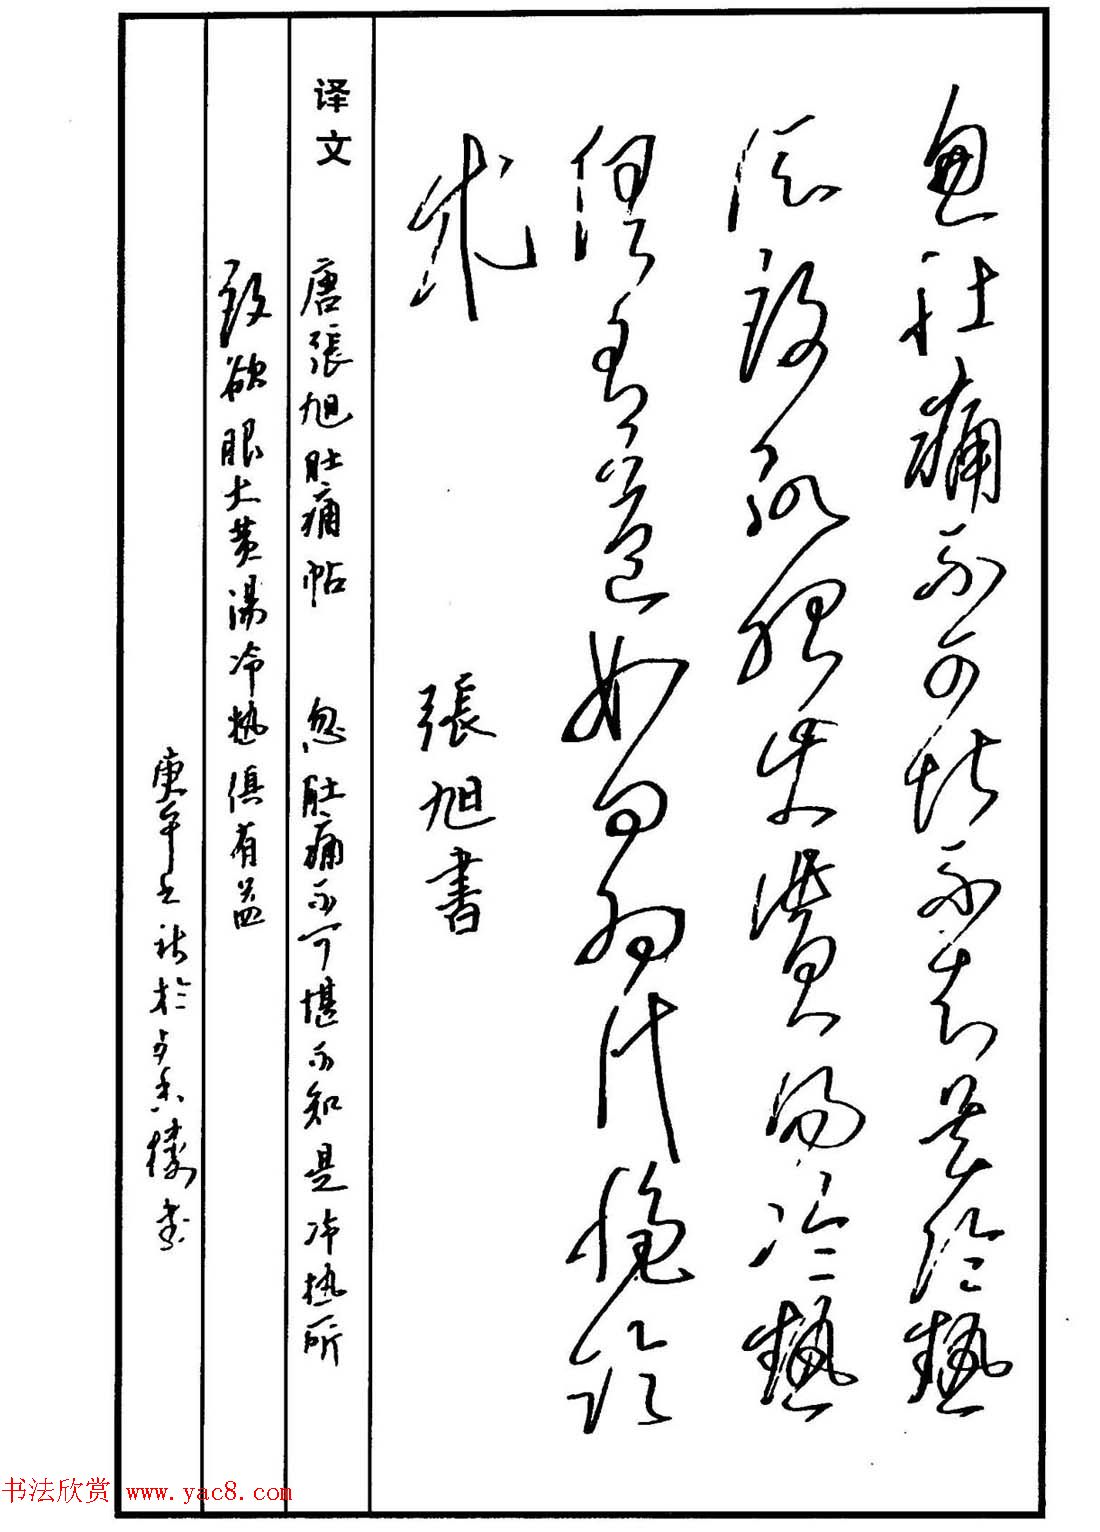 忽肚痛不可堪不知是冷熱
所致欲服大黄湯冷熱
俱有益如何為計
張旭書
译文 唐張旭肚痛帖 忽肚痛不可堪不知是冷热所
致欲眼大黄湯冷热俱有益
庚午 於 香樓書
书法欣赏 www.yac8.com